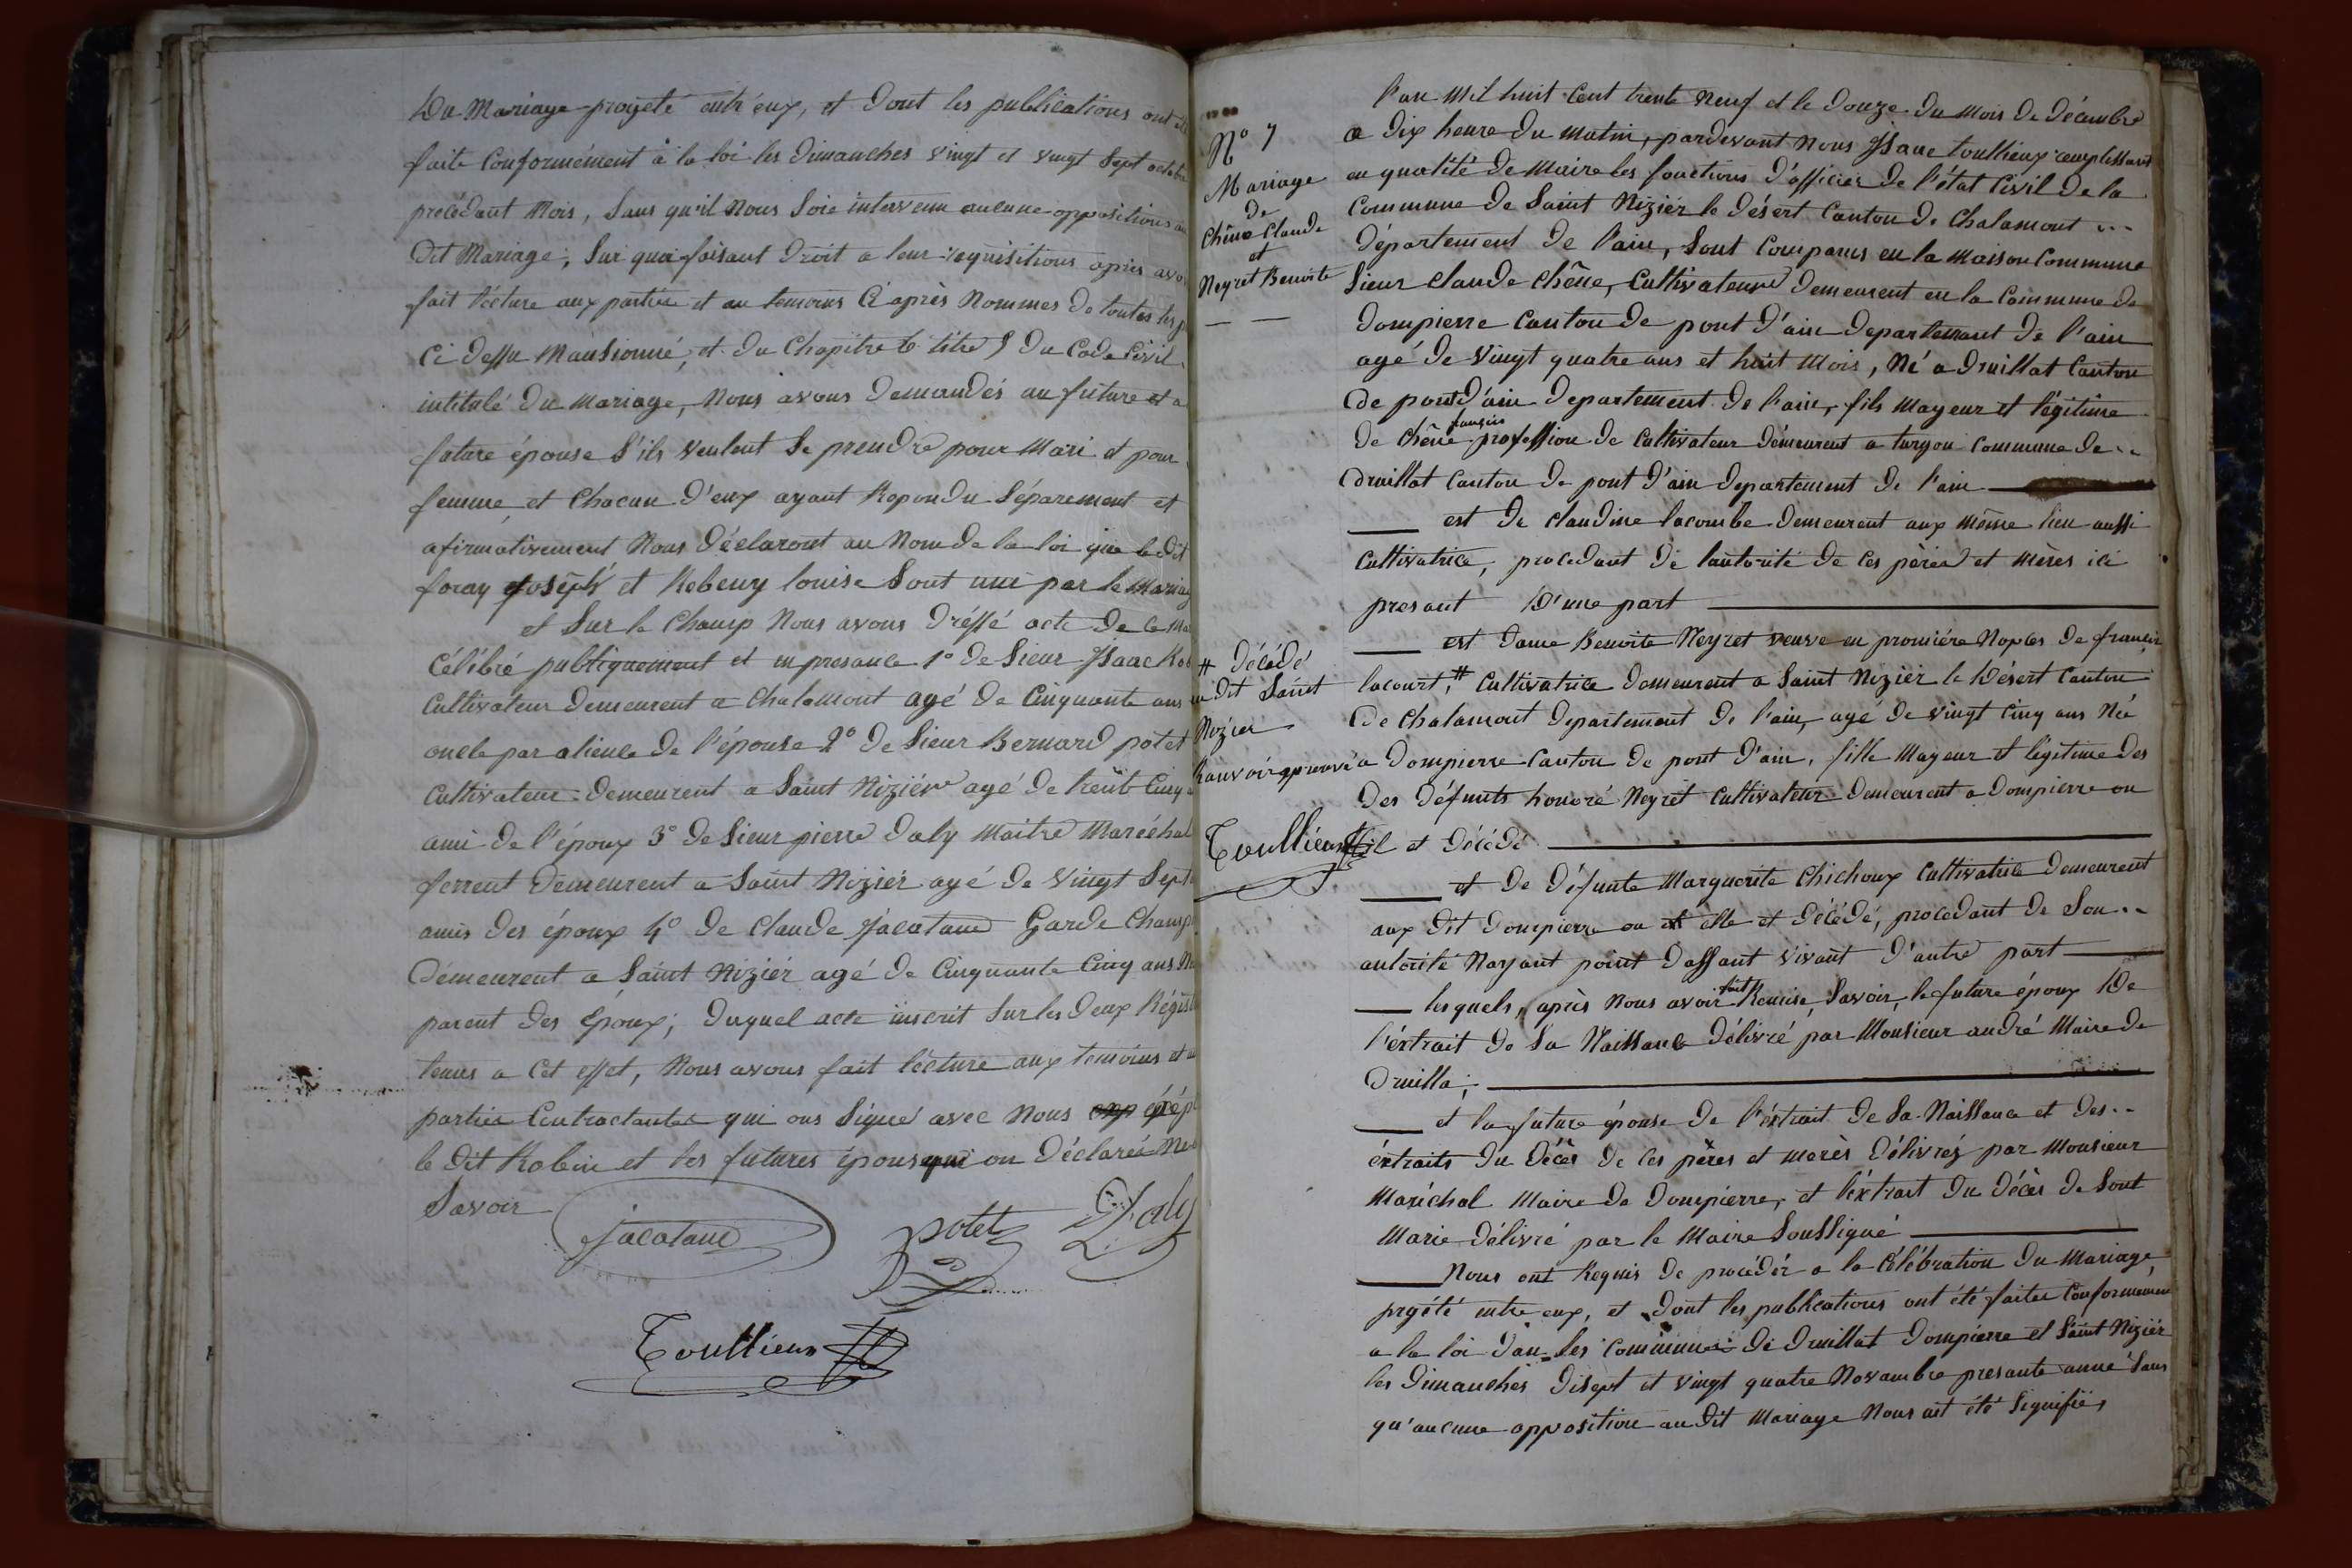 Du Mariage projeté entr'eux, et Dont les publications ont
faite Conformément à la loi les Dimanches vingt et vingt Sept octobre
precédant Mois, Sans qu'il Nous Soie intervenu aucune oppositions au
Dit Mariage, Sur quoi foisant Droit a leur requisitions après avoi
fait lécture aux partier et au temoins Ci après Nommes De toutes les p
Ci Dessu Mansionné, et Du Chapitre 6 titre 5 Du Code Civil
intitulé Du Mariage, Nous avons Demandés au future et a
future épouse S'ils veulent Se prendre pour Mari et pour
femme, et Chacun D'eux ayant Repondu Séparement et
afirmativement Nous Déclaront au Nom De la loi que le Dit
foray joseph et Rebeny louise Sont uni par le Mariag
et Sur le Champ Nous avons Dréssé acte De Ce Ma
Célébré publiquement et en presance 1° De Sieur Jsaac Rob
Cultivateur Demeurent a Chalamont agé De Cinquante ans
oncle par alience De l'épouse 2° De Sieur Bernard potet
Cultivateur Demeurent a Saint Niziér agé De trente Cinq
ami De l'époux 3° De Sieur pierre Daly Maitre Maréchal
ferrent Demeurent a Saint Niziér agé De vingt Sept
amis Des époux 4° De Claude Jacatane Garde Champ
Démeurent a Saint Niziér agé De Cinquante Cinq ans N
parent Des époux; Duquel acte inscrit Sur les Deux Régist
tenus a Cet effet, Nous avons fait lécture aux temoins et
partier Contractantes qui ons Signé avec Nous éxép
le Dit Robin et les futures épous qui on Déclarés Ne
Savoir
jacatane potet Daly
Toullieux
N° 7
Mariage
De
Chêne Claude
et
Neyret Benoite
l'an Mil huit Cent trente Neuf et le Douze Du Mois De Décembre
a Dix heure Du Matin, pardevant Nous Jsaac toullieux remplissant
en qualité De Maire les fonctions D'officier De l'état Civil De la
Commune De Saint Niziér le Désert Canton De Chalamont
Département De l'ain, Sont Comparus en la Maison Commune
Sieur Claude Chêne, Cultivateur Demeurent en la Commune De
Dompierre Canton De pont D'ain Departement De l'ain
agé De vingt quatre ans et huit Mois, Né a Druillat Canton
De pont D'ain Departement De l'ain, fils Mayeur et légitime
De Chêne françois profession De Cultivateur Démeurent a turgon Commune De
Druillat Canton De pont D'ain Departement De l'ain
est De Claudine lacombe Demeurent aux Même lieu aussi
Cultivatrice, procedant De l'autorité De Ces pères et mères ici
presant D'une part
est Dame Benoite Neyret veuve en promiére Noples De françois
lacourt,# Cultivatrice Demeurent a Saint Niziér le Désert Canton
De Chalamont Departement De l'ain, agé De vingt Cinq ans Né
a Dompierre Canton De pont D'ain, fille Mayeur et légitime Des
Des Défunts honoré Neyret Cultivateur Demeurent a Dompierre ou
il et Décédé
# Décédé
au Dit Saint
Nizier
Ranvoir aprouvé
Toullieux
et De Défunte Marguerite Chichoux Cultivatrice Demeurent
aux Dit Dompierre ou elle et Décédé, procedant De Son
autorité Nayant point Dassant vivant D'autre part
lesquels, après Nous avoir fait Remise, Savoir, le future époux De
l'éxtrait De Sa Naissance Délivré par Monsieur andré Maire De
Druilla,
et la future épouse De l'éxtrait De Sa Naissance et Des
éxtraits Du Décès De Ces pères et merès Délivréz par Monsieur
Maréchal Maire De Dompierre, et l'éxtrait Du Décès De Sont
Marie Délivré par le Maire Soussigné
Nous ont Requis De procédér a la Célébration Du Mariage,
projété entre eux, et Dont les publications ont été faites Conformément
a la loi Dan les Communes De Druillat Dompierre et Saint Niziér
les Dimanches Disept et vingt quatre Novambre presante anné Sans
qu'aucune opposition au Dit Mariage Nous ait été Signifie,